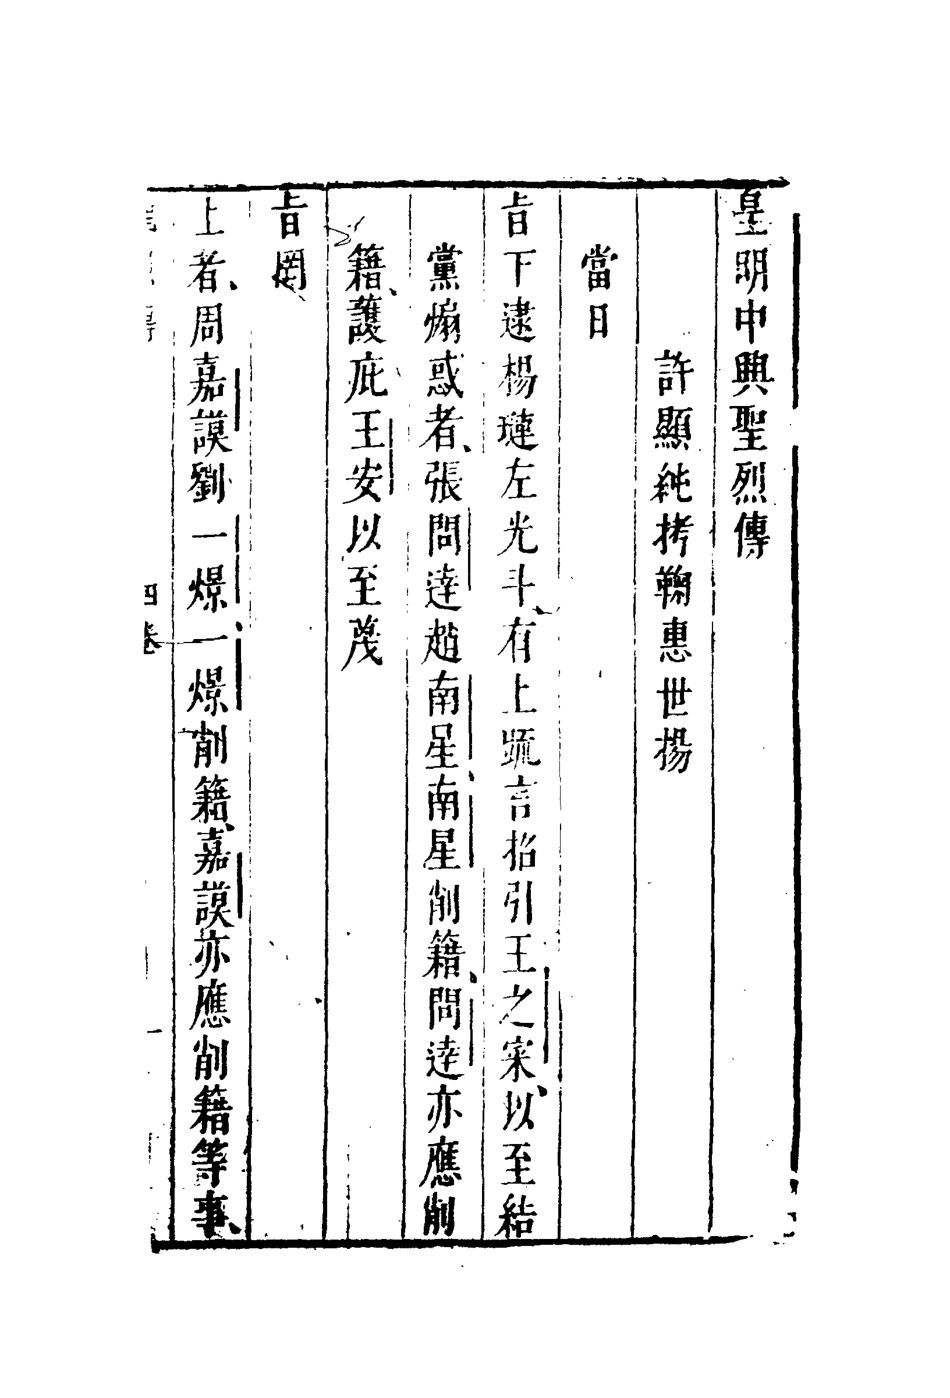 皇明中興聖烈傳
許顯純拷鞫惠世揚
當日
旨下逮楊漣左光斗、有上䟽言招引王之寀、以至結
黨煽惑者、張問達趙南星、南星削籍、問達亦應削
籍、護庇王安以至蔑
旨罔
上者、周嘉謨劉一燝、一燝削籍、嘉謨亦應削籍等事、
四卷
一